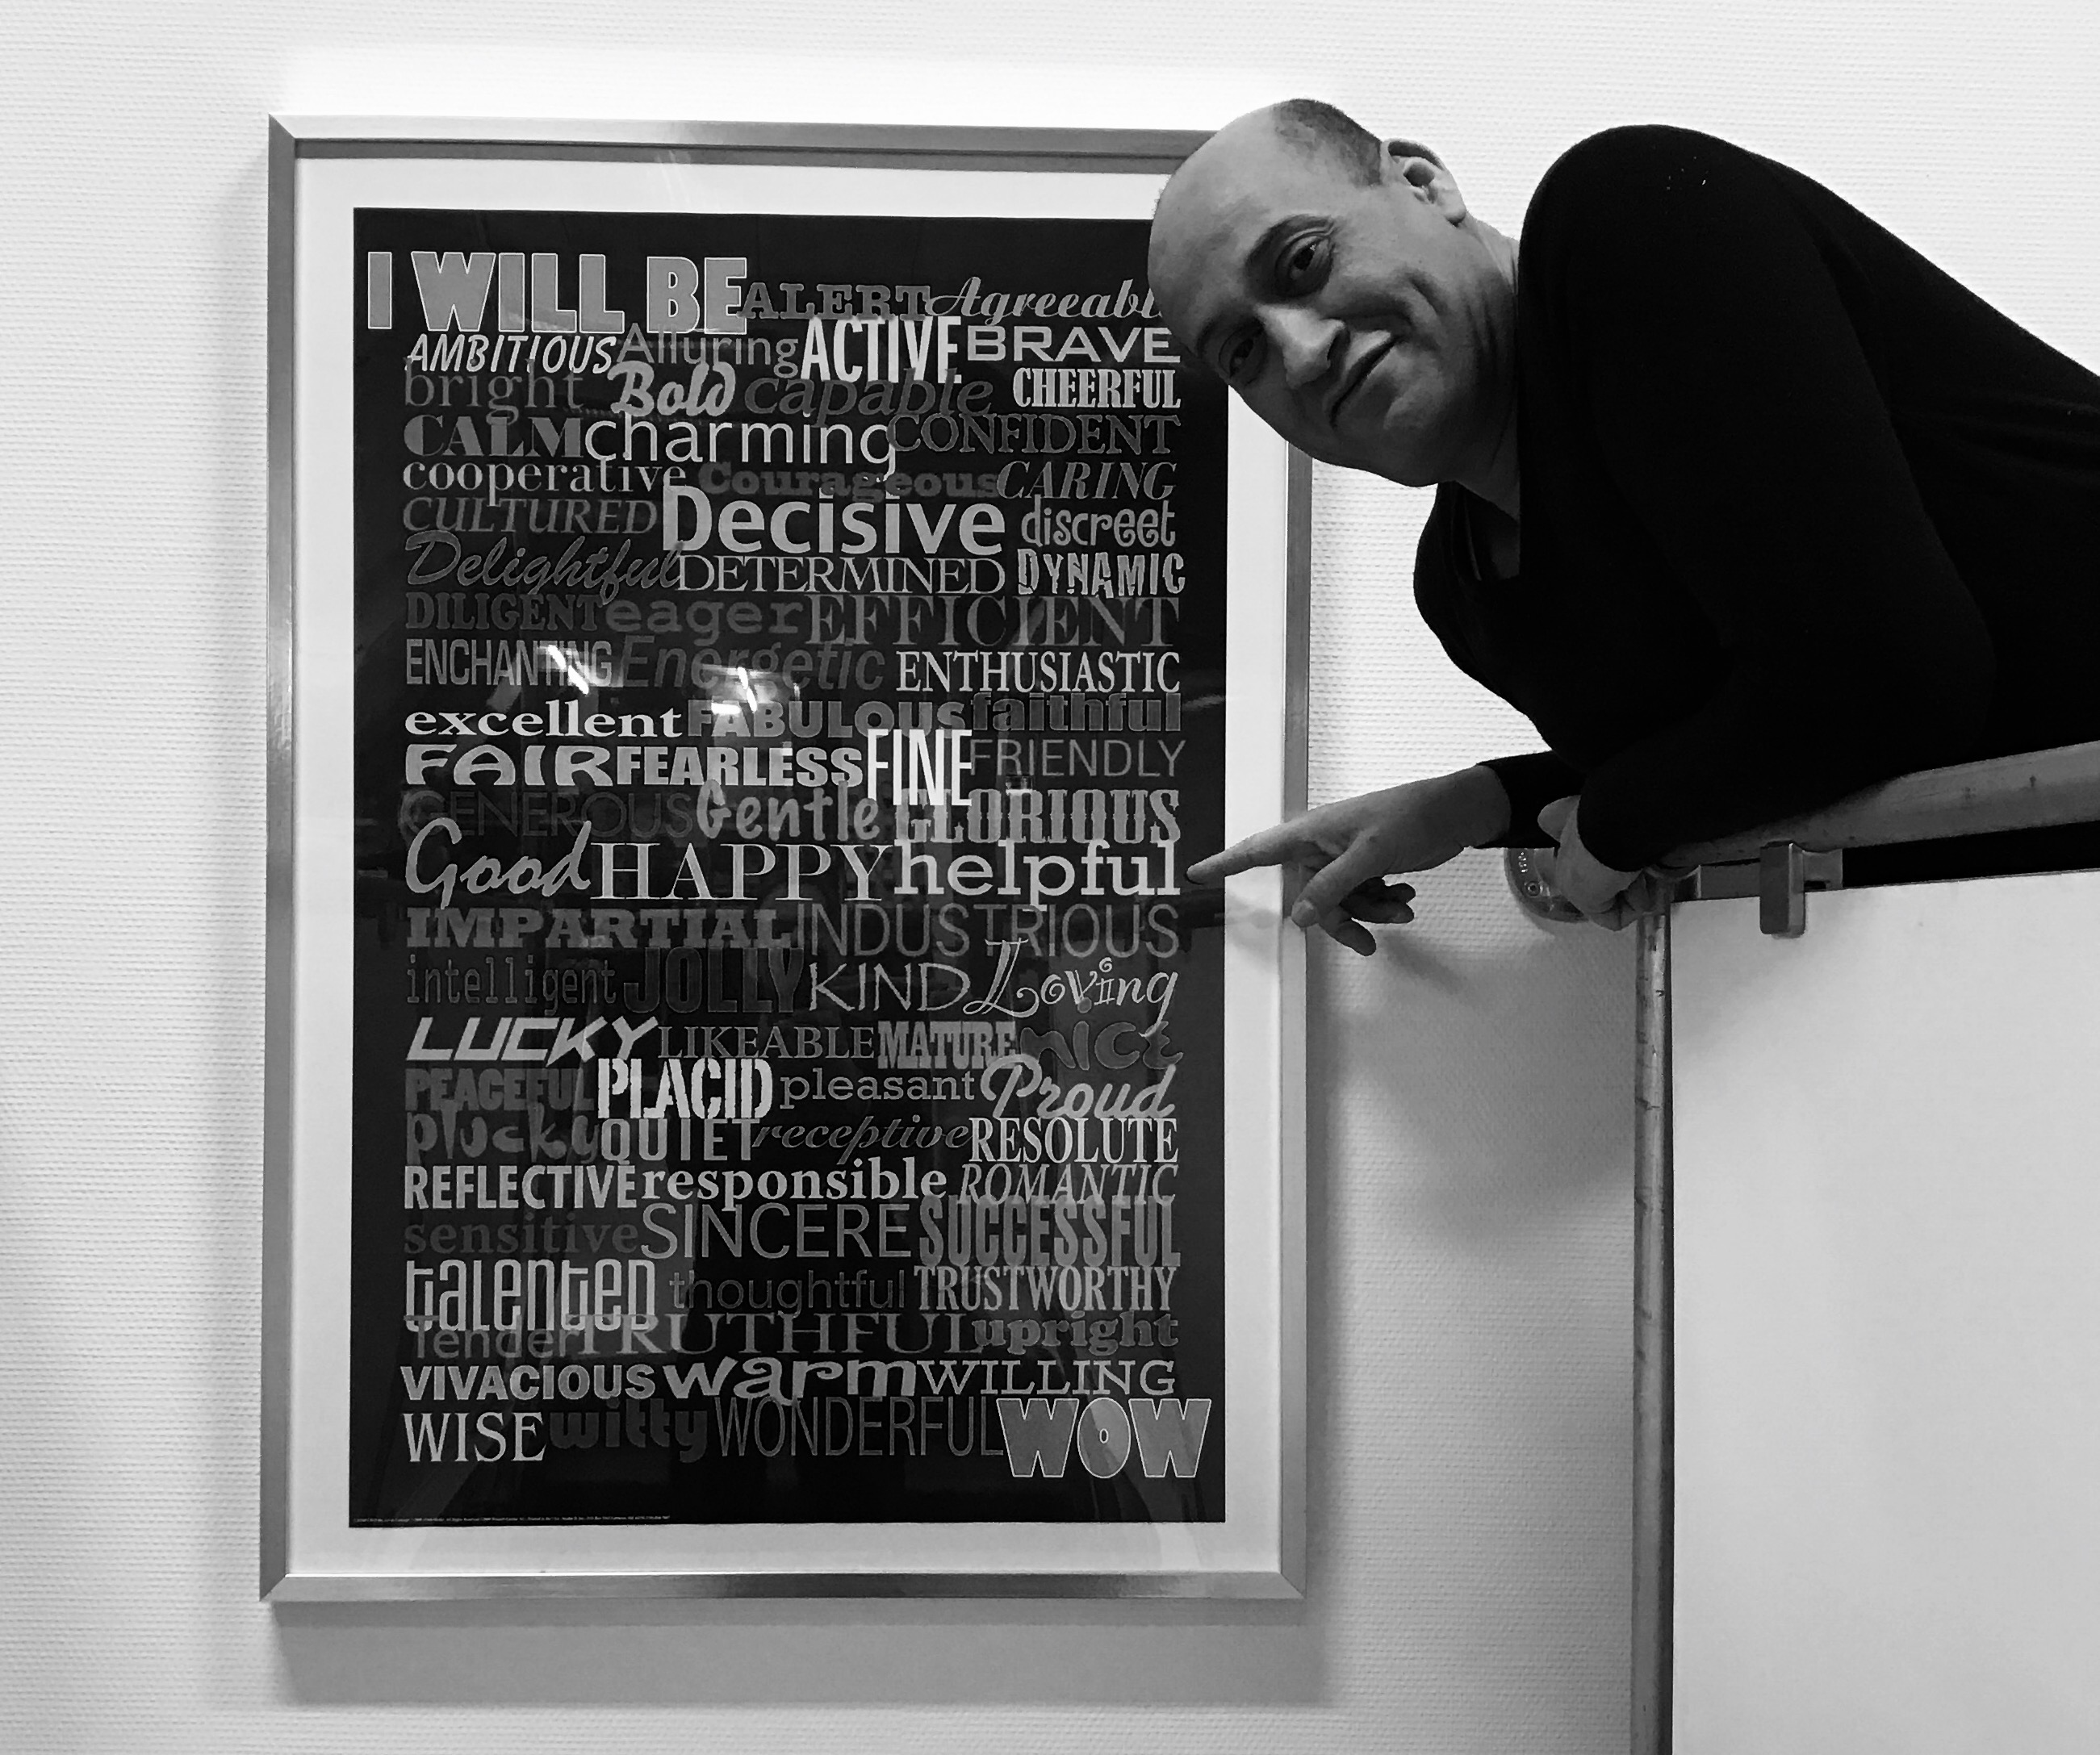 I WILL BE ALERT Agreeabl
AMBITIOUS Alluring ACTIVE BRAVE
bright Bold capable CHEERFUL
CALM charming CONFIDENT
cooperative Courageous CARING
CULTURED Decisive discreet
Delightful DETERMINED DYNAMIC
DILIGENT eager EFFICIENT
ENCHANTING Energetic ENTHUSIASTIC
excellent FABULOUS faithful
FAIR FEARLESS FINE FRIENDLY
GENEROUS Gentle GLORIOUS
Good HAPPY helpful
IMPARTIAL INDUSTRIOUS
intelligent JOLLY KIND Loving
LUCKY LIKEABLE MATURE NICE
PEACEFUL PLACID pleasant Proud
plucky QUIET receptive RESOLUTE
REFLECTIVE responsible ROMANTIC
sensitive SINCERE SUCCESSFUL
talented thoughtful TRUSTWORTHY
Tender TRUTHFUL upright
VIVACIOUS warm WILLING
WISE witty WONDERFUL WOW